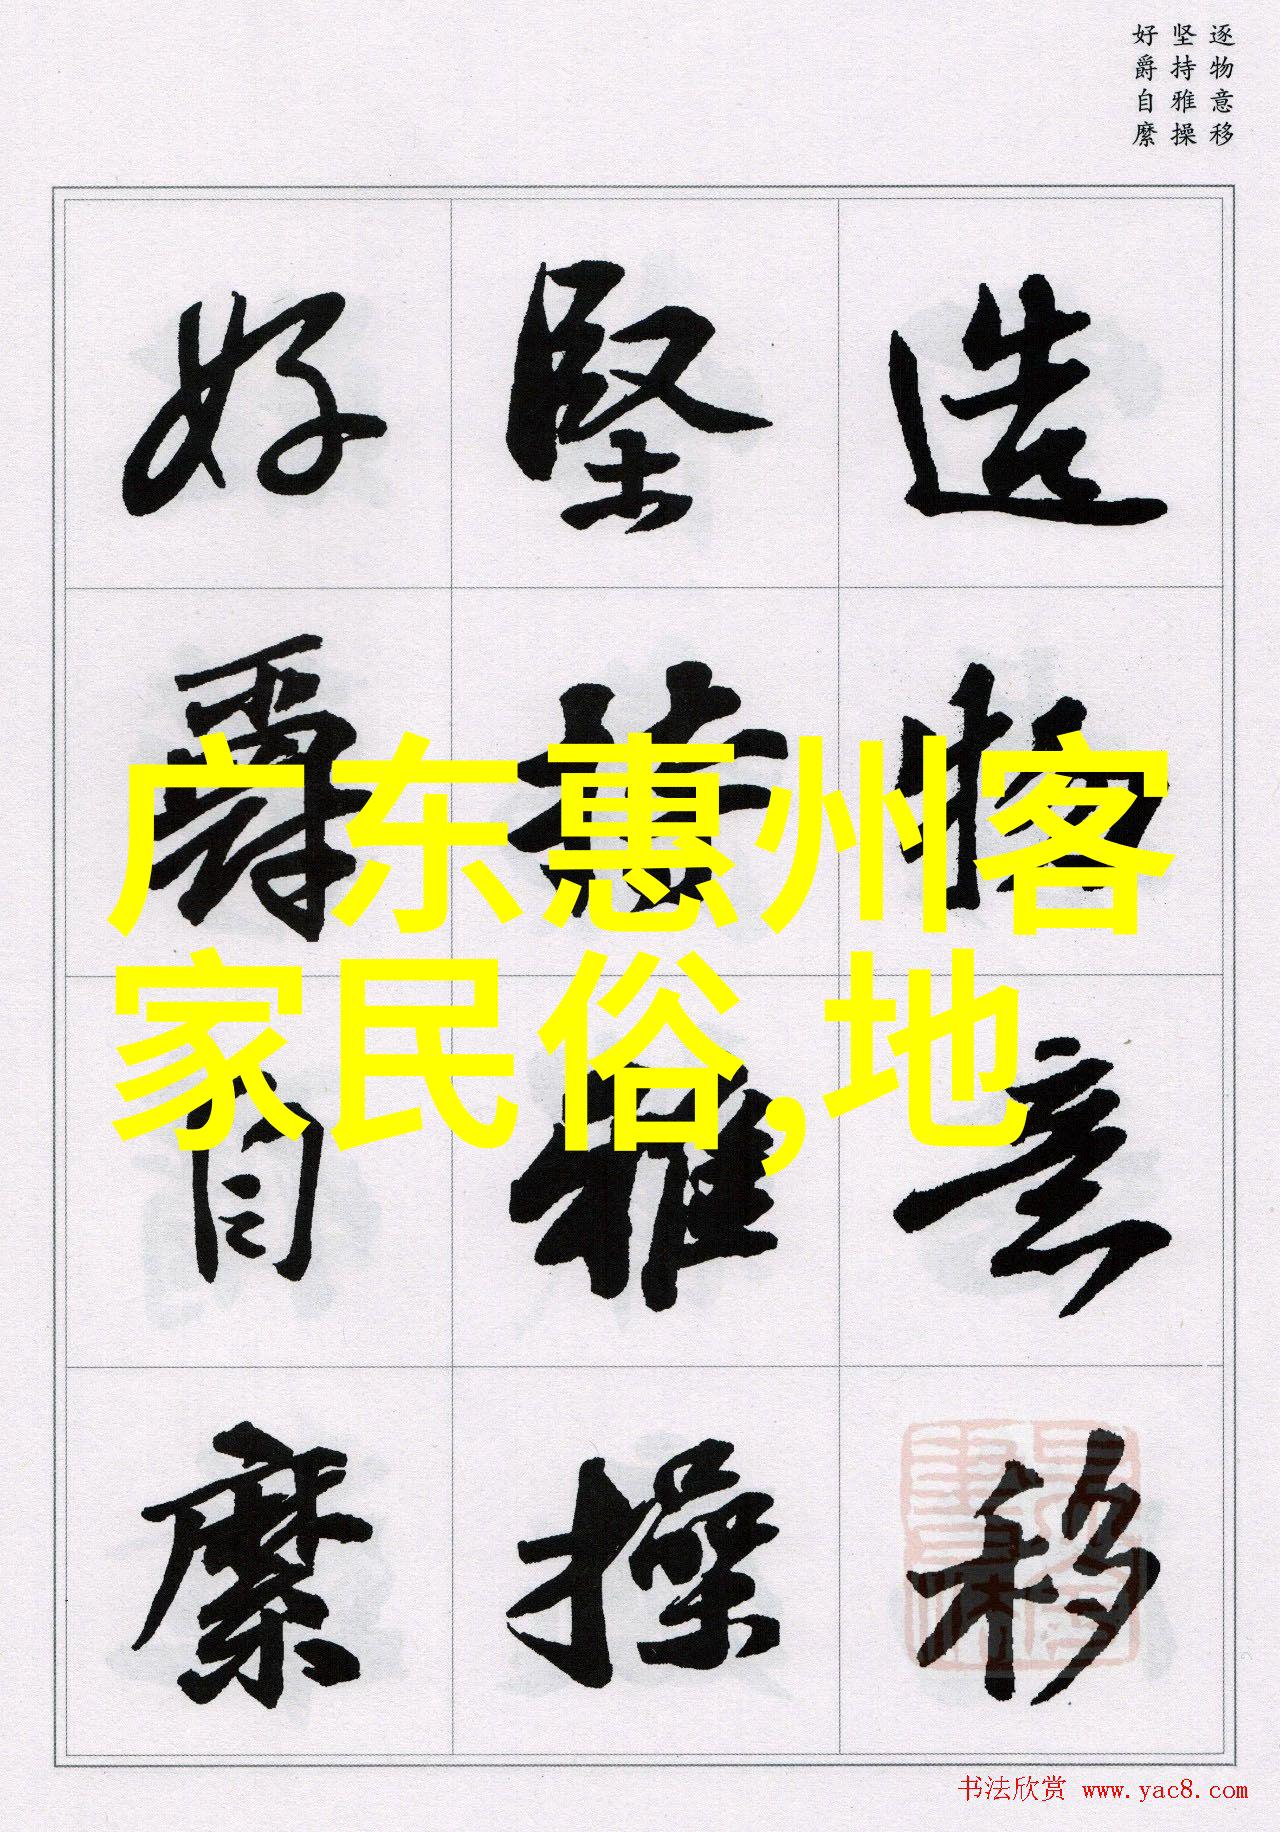 逐物意移
坚持雅操
好爵自縻
造物意移
坚持雅操
好爵自縻
广东惠州客
家民俗,地
书法欣赏 www.yac8.com